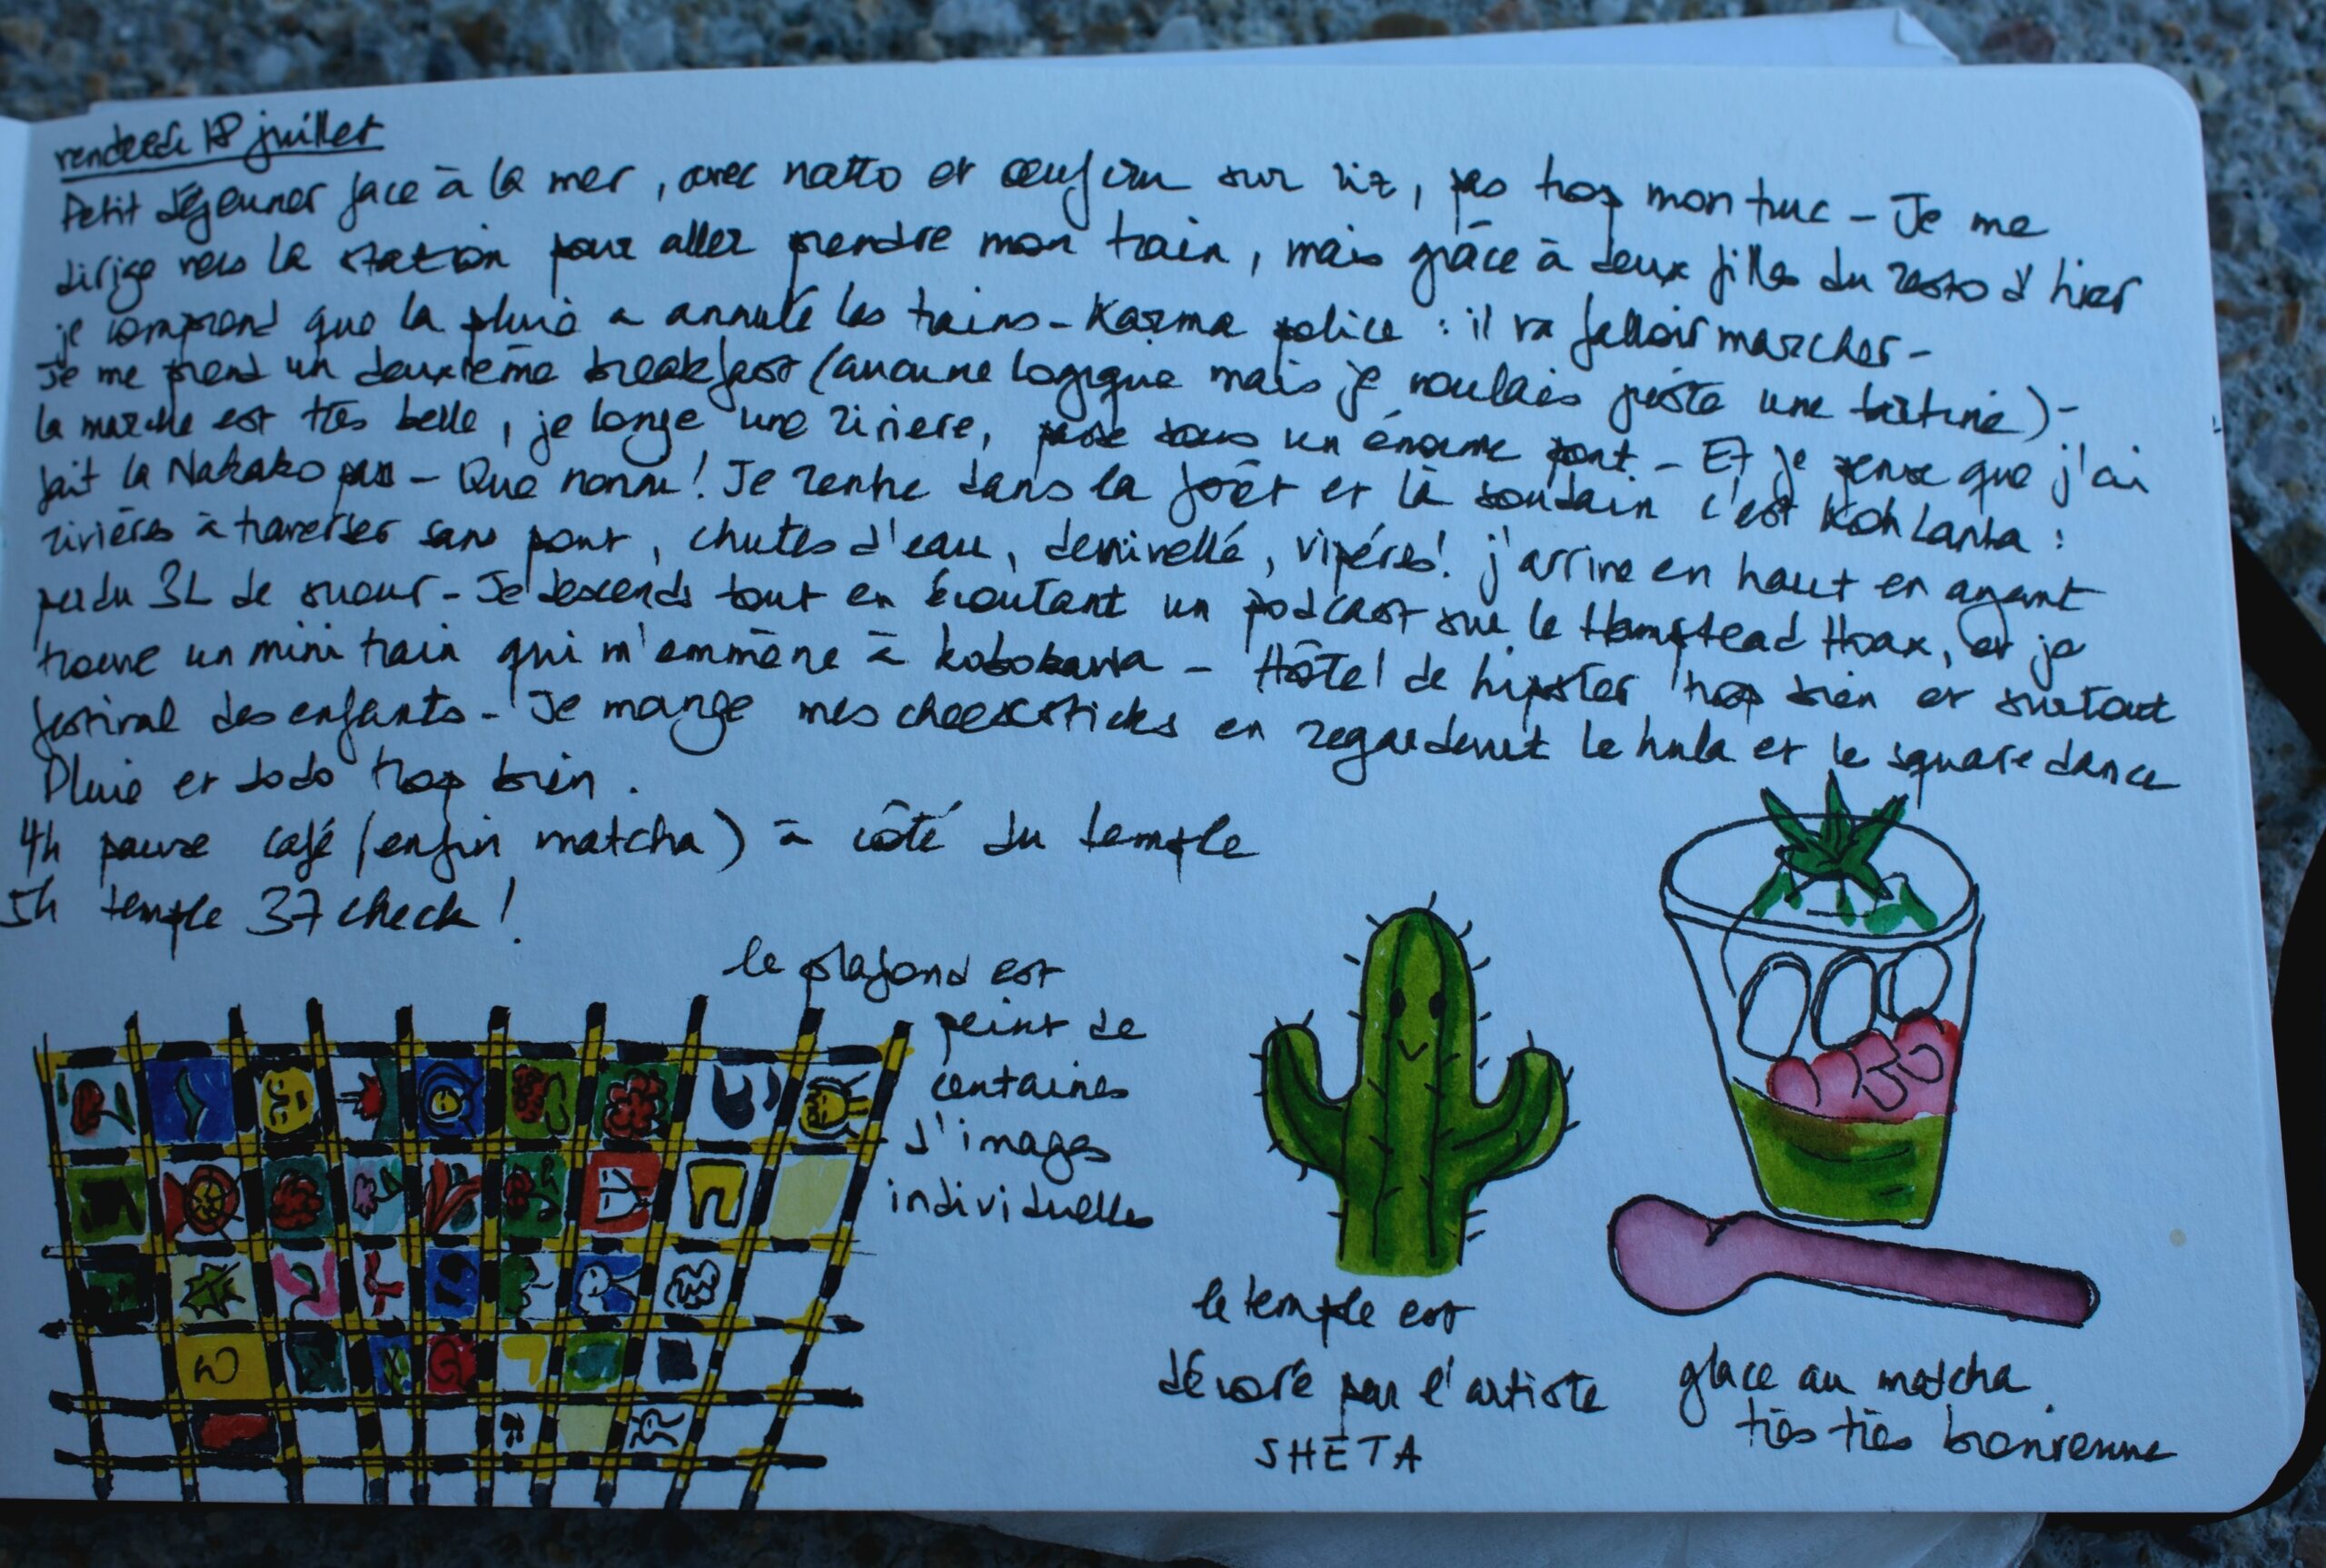 vendredi 18 juillet
Petit déjeuner face à la mer, avec natto et œuf cru sur riz, pas trop mon truc - Je me
dirige vers la station pour aller prendre mon train, mais grâce à deux filles du resto d'hier
je comprend que la pluie a annulé les trains - Karma police : il va falloir marcher -
Je me prend un deuxième breakfast (aucune logique mais je voulais juste une tartine) -
la marche est très belle, je longe une riviere, passe sous un énorme pont - Et je pense que j'ai
fait la Nakako pass - Que nonnn! Je rentre dans la forêt et là soudain c'est Koh Lanta :
rivières à traverser sans pont, chutes d'eau, dennivellé, vipères! j'arrive en haut en ayant
perdu 3L de sueur - Je descends tout en écoutant un podcast sur le Hampstead Hoax, et je
trouve un mini train qui m'emmène à kobokawa - Hôtel de hipster trop bien et surtout
festival des enfants - Je mange mes cheesesticks en regardant le hula et le square dance
Pluie et dodo trop bien.
4h pause café (enfin matcha) à côté du temple
5h temple 37 check!
le plafond est
peint de
centaines
d'images
individuelles
le temple est
décoré par l'artiste
SHETA
glace au matcha
très très bienvenue